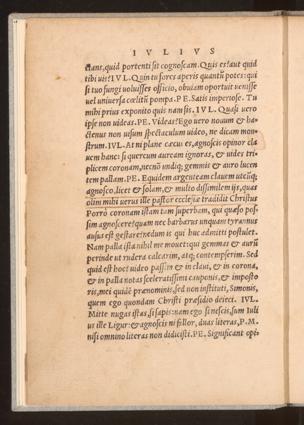 IVLIVS
ctans, quid portenti sit cognoscam. Quis es? aut quid
tibi uis? IVL. Quin tu fores aperis quantũ potes: qui
si tuo fungi uoluisses officio, obuiam oportuit uenisse
uel uniuersa cœlitũ pompa. PE. Satis imperiose. Tu
mihi prius exponito quis nam sis. IVL. Quasi uero
ipse non uideas. PE. Videas? Ego uero nouum & ha⸗
ctenus non uisum spectaculum uideo, ne dicam mon⸗
strum. IVL. At ni plane cæcus es, agnoscis opinor cla
uem hanc: si quercum auream ignoras, & uides tri⸗
plicem coronam, necnõ undiq; gemmis & auro lucen
tem pallam. PE. Equidem argenteam clauem utcũq;
agnosco, licet & solam, & multo dissimilem ijs, quas
olim mihi uerus ille pastor ecclesiæ tradidit Christus
Porrò coronam istam tam superbam, qui quæso pos⸗
sim agnoscere? quam nec barbarus unquam tyrannus
ausus est gestare: nedum is qui huc admitti postulet.
Nam palla ista nihil me mouet: qui gemmas & aurũ
perinde ut rudera calcarim, atq; contempserim. Sed
quid est hoc? uideo passim & in claui, & in corona,
& in palla notas sceleratissimi cauponis, & imposto
ris, mei quidẽ prænominis, sed non instituti, Simonis,
quem ego quondam Christi præsidio deieci. IVL.
Mitte nugas istas, si sapis: nam ego si nescis, sum Iuli
us ille Ligur: & agnoscis ni fallor, duas literas, P. M.
nisi omnino literas non didicisti. PE. Significant opi⸗